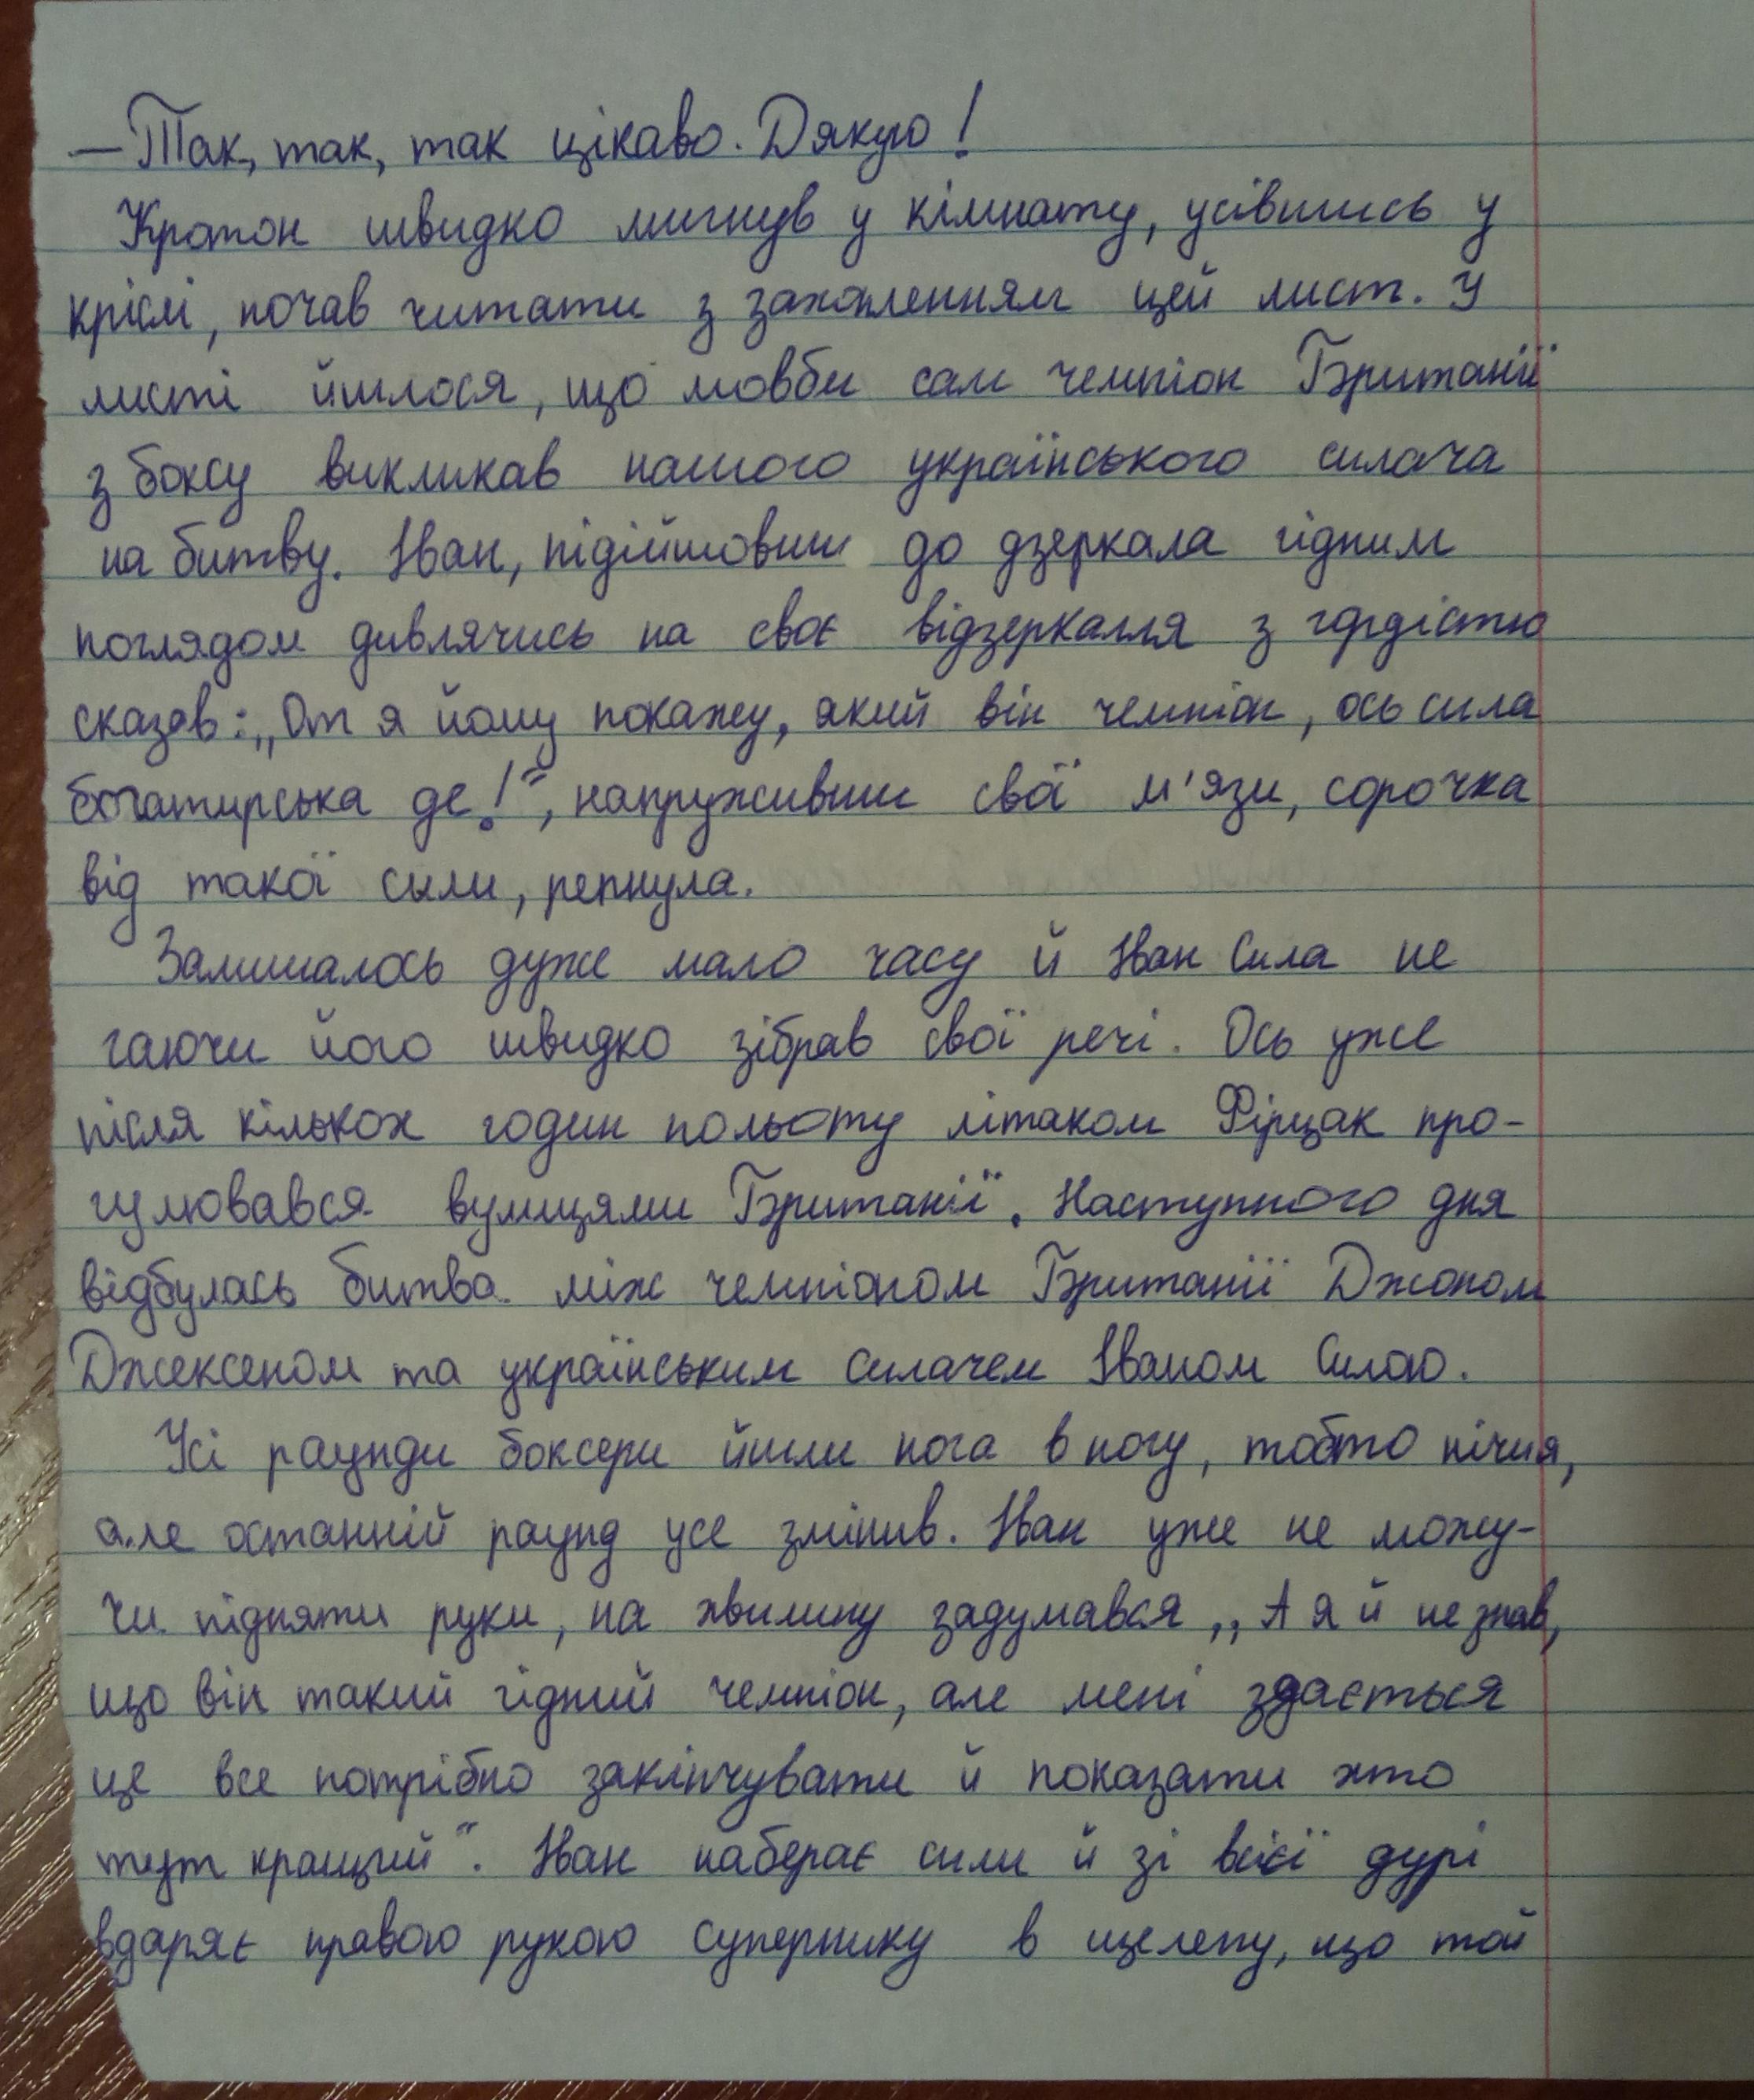 — Так, так, так цікаво. Дякую!
Кротон швидко мигнув у кімнату, усівшись у
кріслі, почав читати з захопленням цей лист. У
листі йшлося, що мовби сам чемпіон Британії
з боксу викликав нашого українського силача
на битву. Іван, підійшовши до дзеркала гідним
поглядом дивлячись на своє відзеркалля з гордістю
сказав: „От я йому покажу, який він чемпіон, ось сила
богатирська де!", напруживши свої м'язи, сорочка
від такої сили, репнула.
Залишалось дуже мало часу й Іван Сила не
гаючи його швидко зібрав свої речі. Ось уже
після кількох годин польоту літаком Фірцак про-
гулювався вулицями Британії. Наступного дня
відбулась битва між чемпіоном Британії Джоном
Джексеном та українським силачем Іваном Силою.
Усі раунди боксери йшли нога в ногу, тобто нічия,
але останній раунд усе змінив. Іван уже не можу-
чи підняти руки, на хвилину задумався „А я й не знав,
що він такий гідний чемпіон, але мені здається
це все потрібно закінчувати й показати хто
тут кращий". Іван наберає сили й зі всієї дурі
вдаряє правою рукою супернику в щелепу, що той